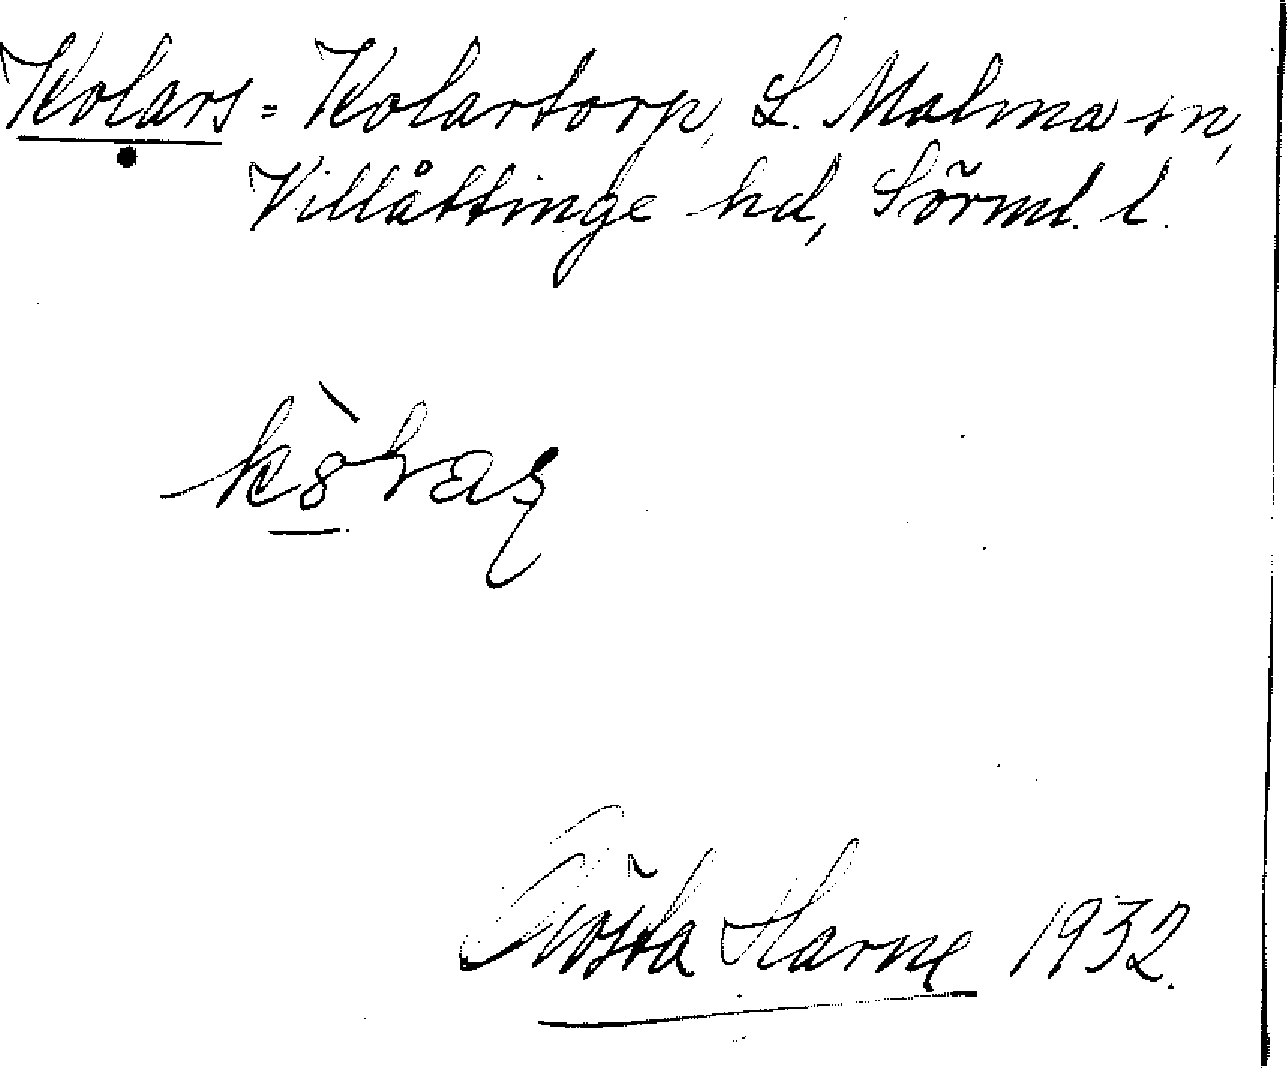 Kolars = Kolartorp, L. Malma sn,
Villåttinge hd, Sörml. l.
Gösta Harne 1932.